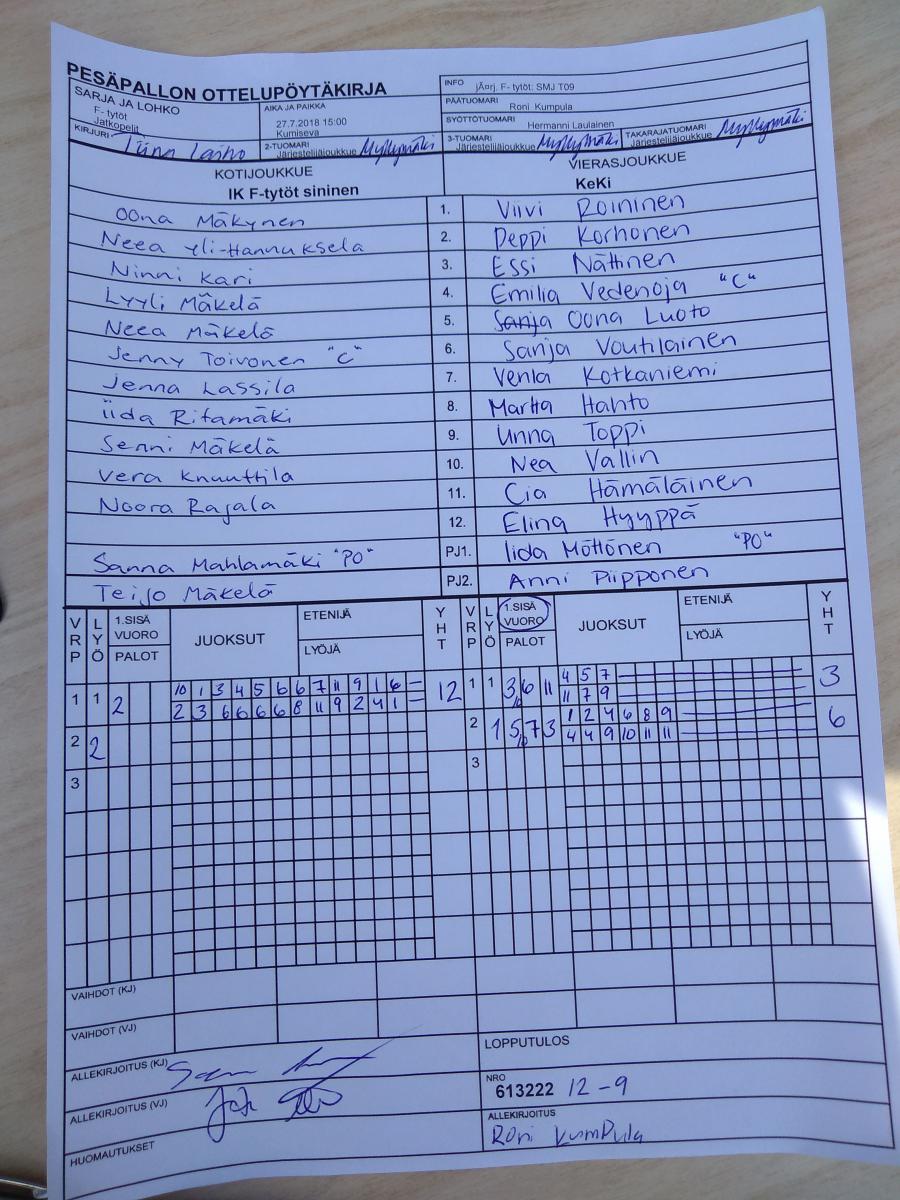 PESÄPALLON OTTELUPÖYTÄKIRJA
SARJA JA LOHKO
F- tytöt
Jatkopelit
AIKA JA PAIKKA
27.7.2018 15:00
Kumiseva
INFO jÃ¤rj. F- tytöt: SMJ T09
PÄÄTUOMARI
Roni Kumpula
SYÖTTÖTUOMARI
Hermanni Laulainen
KIRJURI Tiina Laiho
2-TUOMARI
Järjestelijäjoukkue Myllymäki
3-TUOMARI
Järjestelijäjoukkue Myllymäki
TAKARAJATUOMARI
Järjestelijäjoukkue Myllymäki
KOTIJOUKKUE VIERASJOUKKUE
IK F-tytöt sininen KeKi
Oona Mäkynen 1. Viivi Roininen
Neea Yli-Hannuksela 2. Peppi Korhonen
Ninni Kari 3. Essi Nättinen
Lyyli Mäkelä 4. Emilia Vedenoja "C"
Neea Mäkelä 5. Sanja Oona Luoto
Jenny Toivonen "C" 6. Sanja Voutilainen
Jenna Lassila 7. Venla Kotkaniemi
Iida Ritamäki 8. Martta Hahto
Senni Mäkelä 9. Unna Toppi
Vera Knuuttila 10. Nea Vallin
Noora Rajala 11. Cia Hämäläinen
12. Elina Hyyppä
Sanna Mahlamäki "PO" PJ1. Iida Möttönen "PO"
Teijo Mäkelä PJ2. Anni Piipponen
VRP LYÖ 1.SISÄ VUORO PALOT JUOKSUT ETENIJÄ LYÖJÄ YHT VRP LYÖ 1.SISÄ VUORO PALOT JUOKSUT ETENIJÄ LYÖJÄ YHT
1 1 2 10 1 3 4 5 6 6 7 11 9 1 6 - 12 1 1 3 6 11 4 5 7 3
2 3 6 6 6 6 8 11 9 2 4 1 - 11 7 9
2 2 2 1 5 7 3 1 2 4 6 8 9 6
4 4 9 10 11 11
3 3
VAIHDOT (KJ)
VAIHDOT (VJ)
ALLEKIRJOITUS (KJ)
LOPPUTULOS
ALLEKIRJOITUS (VJ)
NRO
613222 12-9
HUOMAUTUKSET
ALLEKIRJOITUS
Roni Kumpula